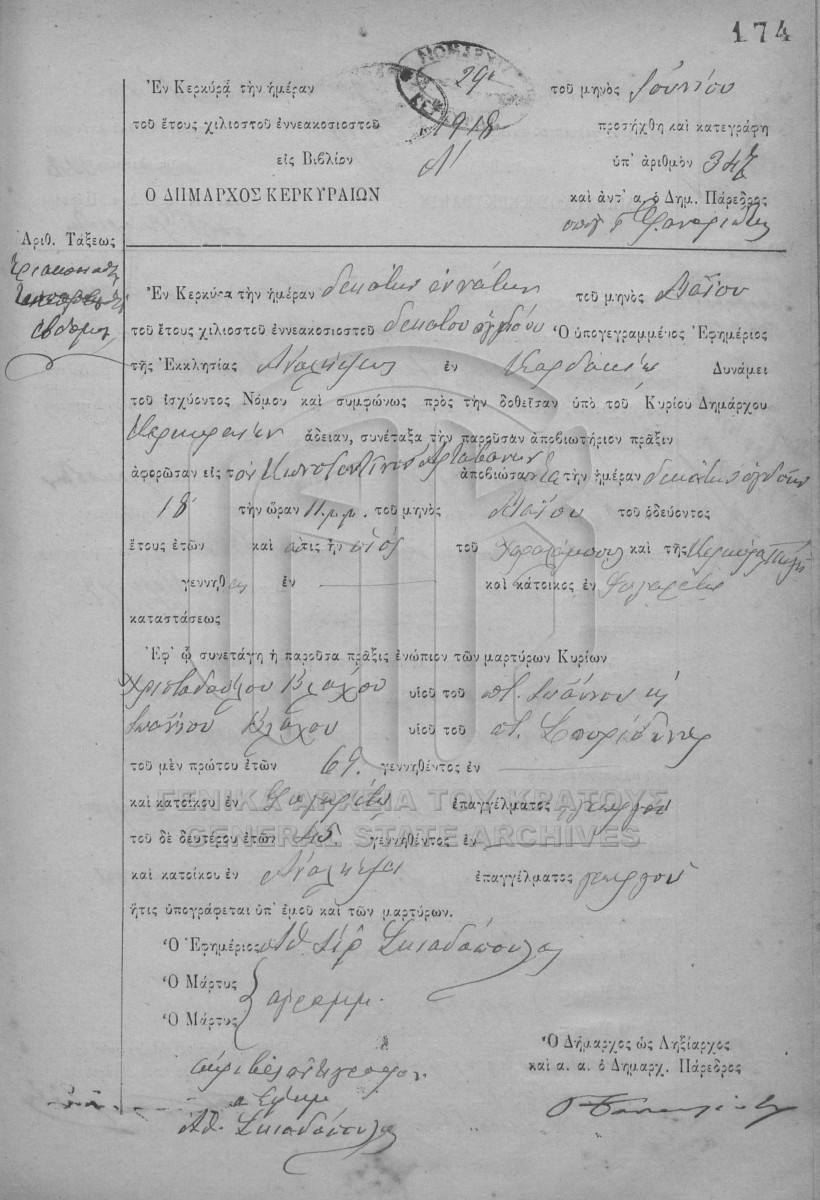 174
Ἐν Κερκύρᾳ τὴν ἡμέραν 29 τοῦ μηνὸς Ἰουνίου
τοῦ ἔτους χιλιοστοῦ ἐννεακοσιοστοῦ 1918 προσήχθη καὶ κατεγράφη
εἰς Βιβλίον Α' ὑπ' ἀριθμὸν 347
Ο ΔΗΜΑΡΧΟΣ ΚΕΡΚΥΡΑΙΩΝ καὶ ἀντ' α. ὁ Δημ. Πάρεδρος
Ἀριθ. Τάξεως
τριακοσιοστὴ
ἑβδόμη
Ἐν Κερκύρα τὴν ἡμέραν δεκάτην ἐννάτην τοῦ μηνὸς Μαΐου
τοῦ ἔτους χιλιοστοῦ ἐννεακοσιοστοῦ δεκάτου ὀγδόου Ὁ ὑπογεγραμμένος Ἐφημέριος
τῆς Ἐκκλησίας Ἀναλήψεως ἐν Δυνάμει
τοῦ ἰσχύοντος Νόμου καὶ συμφώνως πρὸς τὴν δοθεῖσαν ὑπὸ τοῦ Κυρίου Δημάρχου
Κερκυραίων ἄδειαν, συνέταξα τὴν παροῦσαν ἀποβιωτήριον πρᾶξιν
ἀφορῶσαν εἰς τὸν Κωνσταντῖνον ἀποβιώσαντα τὴν ἡμέραν δεκάτην ὀγδόην
18 τὴν ὥραν 11 μ.μ. τοῦ μηνὸς Μαΐου τοῦ ὁδεύοντος
ἔτους ἐτῶν καὶ ὅστις ἦν υἱὸς τοῦ Χαραλάμπους καὶ τῆς
γεννηθεὶς ἐν καὶ κάτοικος ἐν
καταστάσεως
Ἐφ' ᾧ συνετάγη ἡ παροῦσα πρᾶξις ἐνώπιον τῶν μαρτύρων Κυρίων
Χριστοδούλου Βλάχου υἱοῦ τοῦ ποτ. Ἰωάννου καὶ
Ἰωάννου Βλάχου υἱοῦ τοῦ ποτ. Σπυρίδωνος
τοῦ μὲν πρώτου ἐτῶν 69 γεννηθέντος ἐν
καὶ κατοίκου ἐν ἐπαγγέλματος γεωργοῦ
ΓΕΝΙΚΑ ΑΡΧΕΙΑ ΤΟΥ ΚΡΑΤΟΥΣ
GENERAL STATE ARCHIVES
τοῦ δὲ δευτέρου ἐτῶν 45 γεννηθέντος ἐν
καὶ κατοίκου ἐν Ἀνάληψει ἐπαγγέλματος γεωργοῦ
ἥτις ὑπογράφεται ὑπ' ἐμοῦ καὶ τῶν μαρτύρων.
Ὁ Ἐφημέριος Ἀθ. Ἱερ. Σκιαδόπουλος
Ὁ Μάρτυς
ἀγράμμ.
Ὁ Μάρτυς
Ὁ Δήμαρχος ὡς Ληξίαρχος
καὶ α. α. ὁ Δημαρχ. Πάρεδρος
ἀκριβὲς ἀντίγραφον
ὁ Ἐφημ
Ἀθ. Σκιαδόπουλος